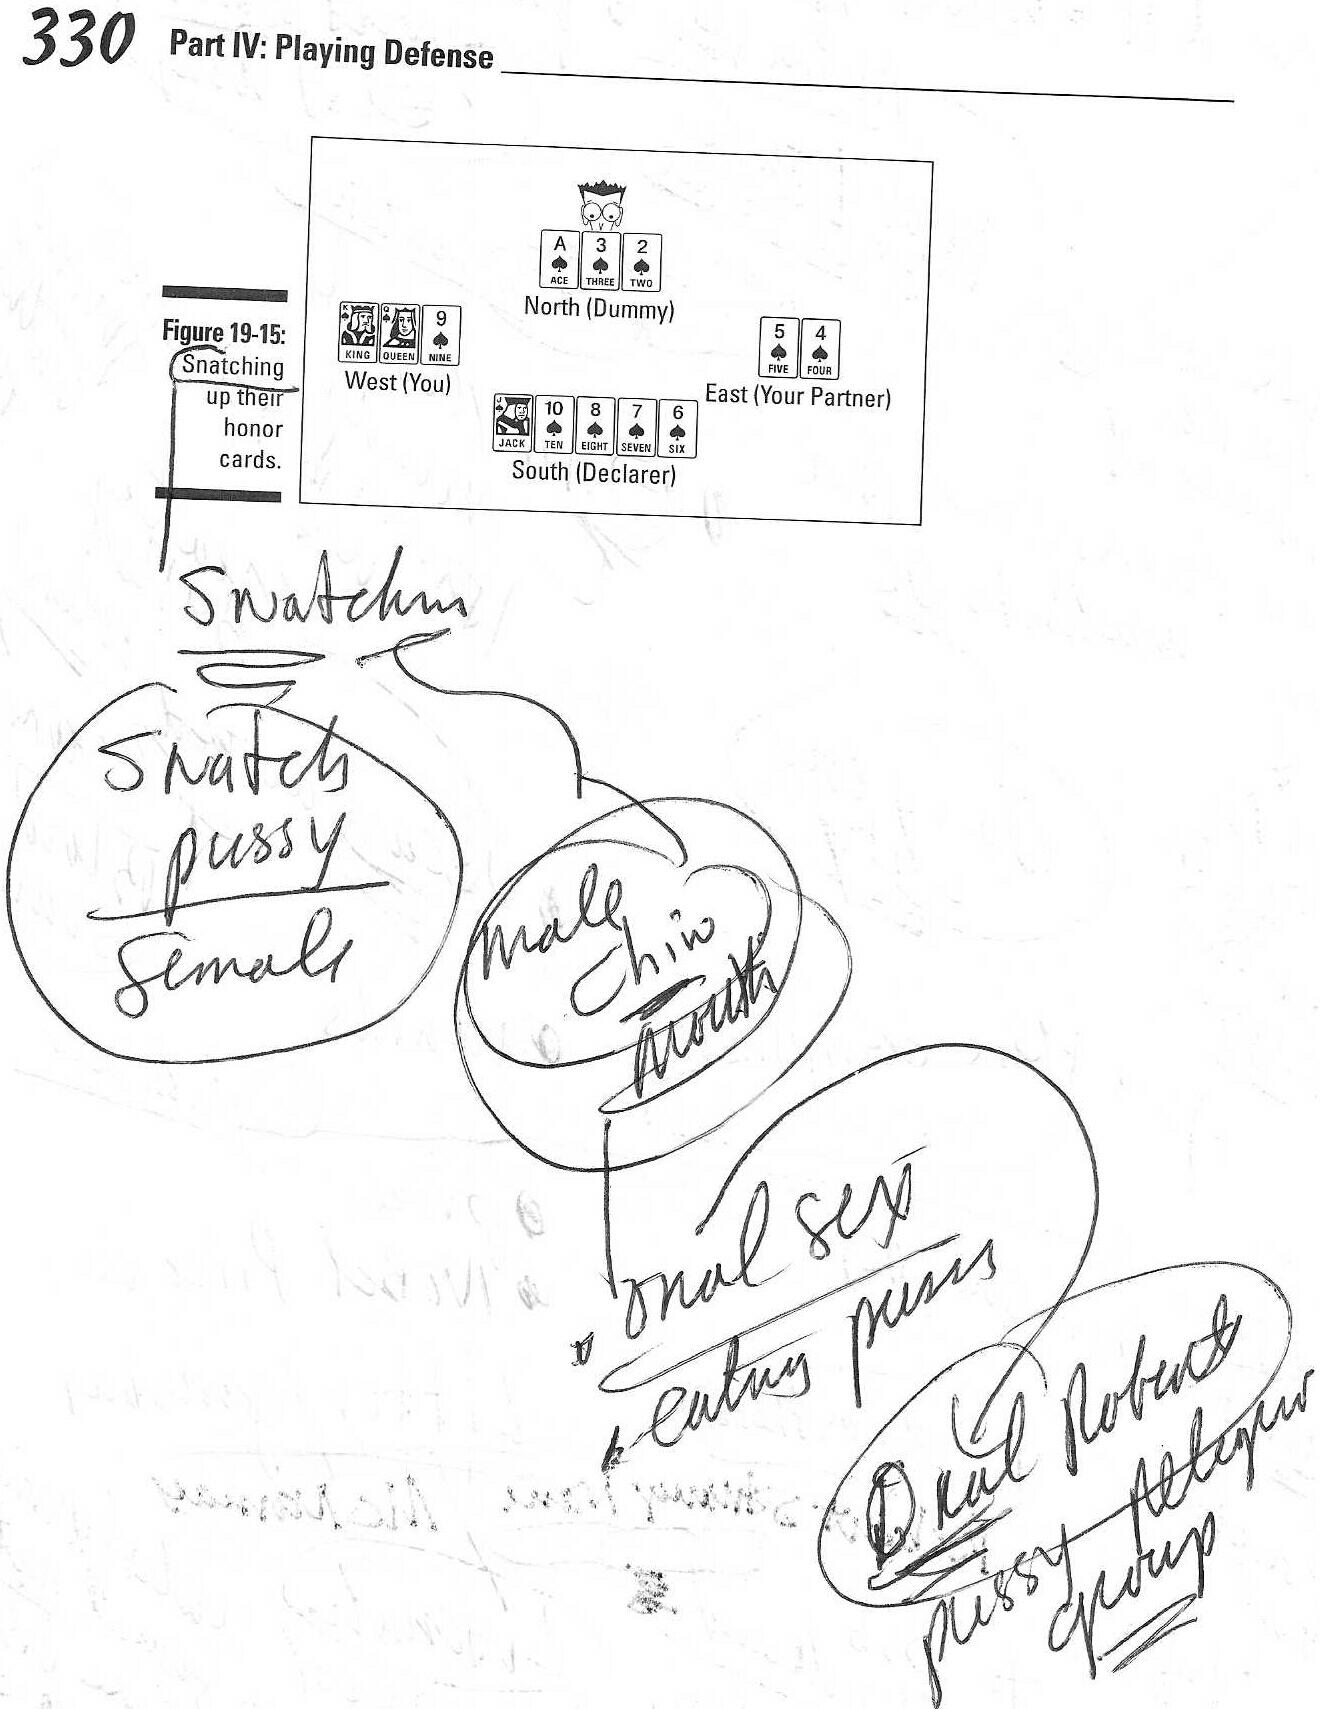 330 Part IV: Playing Defense
A
ACE
3
THREE
2
TWO
North (Dummy)
Figure 19-15:
Snatching
up their
honor
cards.
K
KING
Q
QUEEN
9
NINE
West (You)
5
FIVE
4
FOUR
East (Your Partner)
J
JACK
10
TEN
8
EIGHT
7
SEVEN
6
SIX
South (Declarer)
Snatchin
Snatch
pussy
female
male
chin
mouth
oral sex
eating
Oral Robert
pussy
group